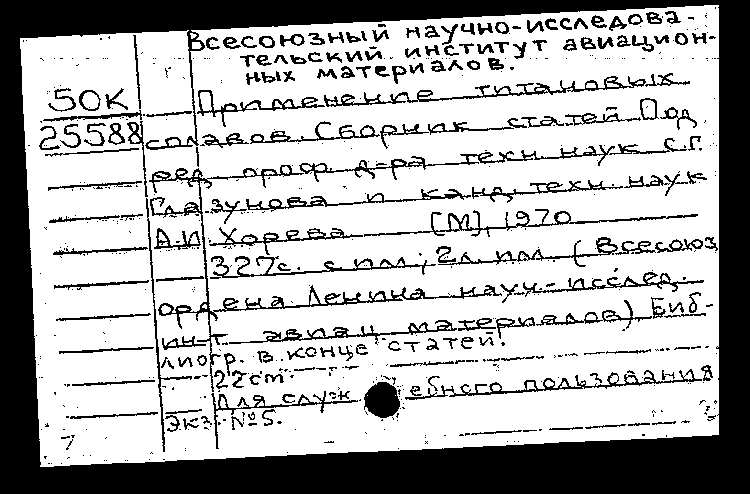 Всесоюзный научно-исследова-
тельский институт авиацион-
ных материалов.
50К
25588
Применение титановых
сплавов. Сборник статей Под
ред. проф. д-ра техн. наук С.Г.
Глазунова и канд. техн. наук
А.И. Хорева [М], 1970
327с. с илл; 2л. илл. (Всесоюз
ордена Ленина науч-исслед.
ин-т авиац материалов) Биб-
лиогр. в конце статей.
22cm.
Для служебного пользования
Экз №5.
7